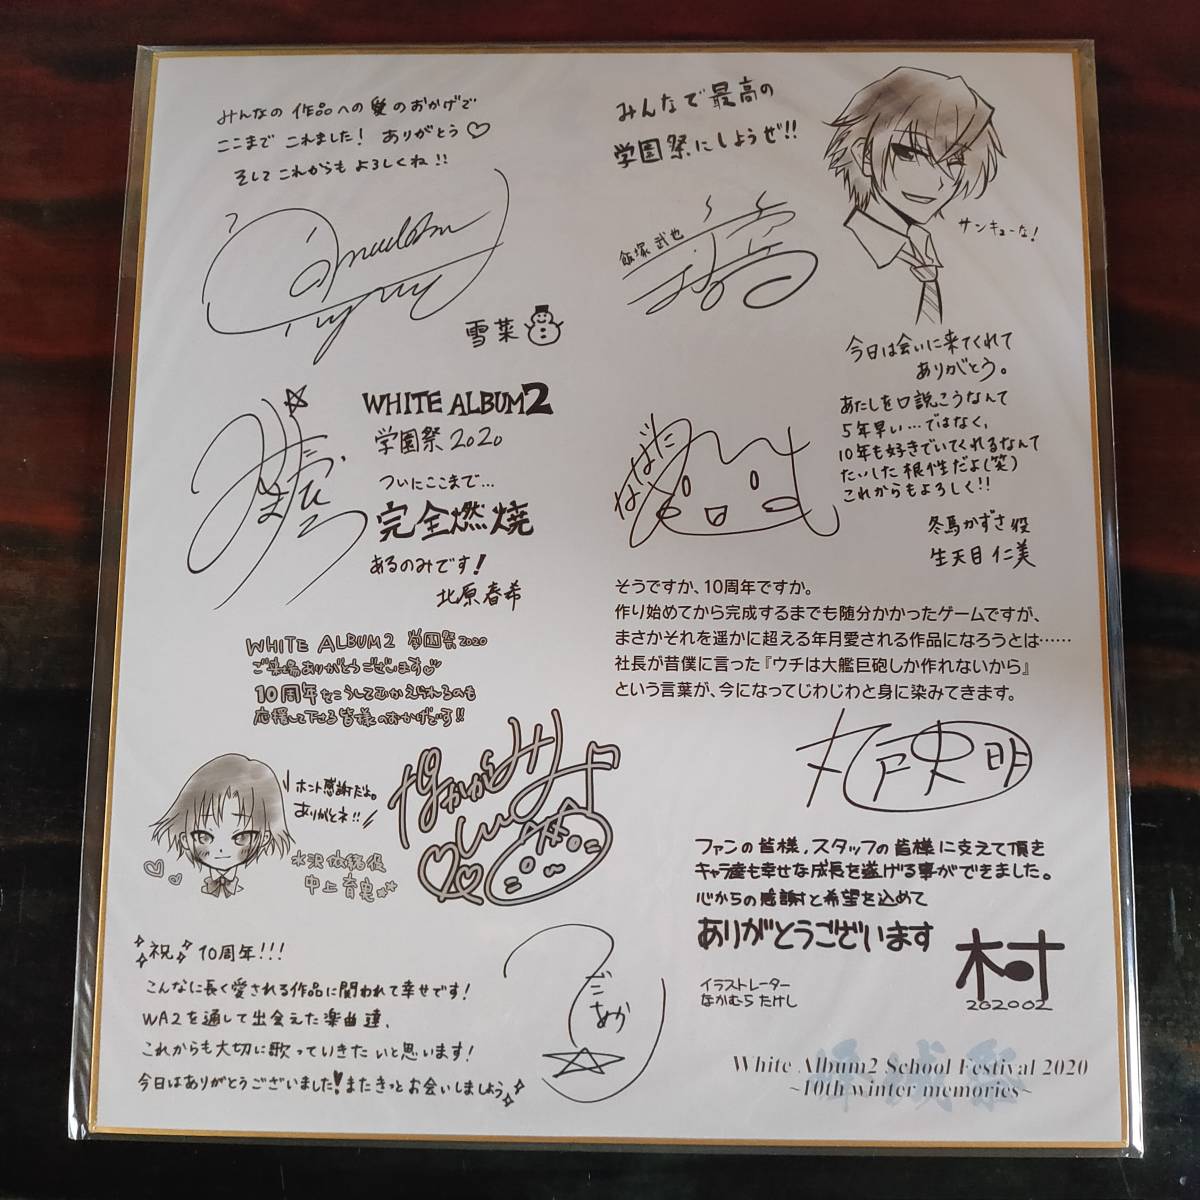 みんなの作品への愛のおかげで
ここまで これました! ありがとう♡
そして これからも よろしくね!!
雪菜
みんなで最高の
学園祭にしようぜ!!
飯塚武也
サンキューな!
WHITE ALBUM2
学園祭2020
ついにここまで…
完全燃焼
あるのみです!
北原春希
今日は会いに来てくれて
ありがとう。
あたしを口説こうなんて
5年早い…ではなく、
10年も好きでいてくれるなんて
たいした根性だよ(笑)
これからもよろしく!!
冬馬かずさ役
生天目仁美
なばため
そうですか、10周年ですか。
作り始めてから完成するまでも随分かかったゲームですが、
まさかそれを遥かに超える年月愛される作品になろうとは……
社長が昔僕に言った『ウチは大艦巨砲しか作れないから』
という言葉が、今になってじわじわと身に染みてきます。
丸戸史明
WHITE ALBUM2 学園祭2020
ご来場ありがとうございます♡
10周年をこうしてむかえられるのも
応援して下さる皆様のおかげです!!
ホント感謝だよ。
ありがとネ!!
水沢依緒役
中上育実
ファンの皆様、スタッフの皆様に支えて頂き
キャラ達も幸せな成長を遂げる事ができました。
心からの感謝と希望を込めて
ありがとうございます
イラストレーター
なかむらたけし
村
202002
祝 10周年!!!
こんなに長く愛される作品に関われて幸せです!
WA2を通して出会えた楽曲達、
これからも大切に歌っていきたいと思います!
今日はありがとうございました♥またきっとお会いしましょう
White Album2 School Festival 2020
~10th winter memories~